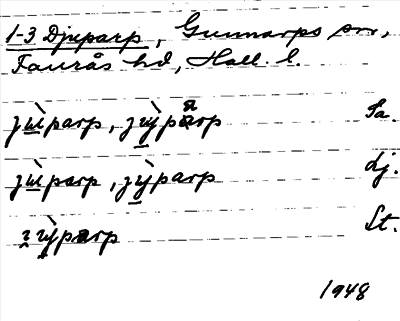 1-3 Djuparp, Gunnarps sn,
Faurås hd, Hall. l.
jùparp, jỳparp Sa.
jùparp, jỳparp dj.
ỳparp St.
1948